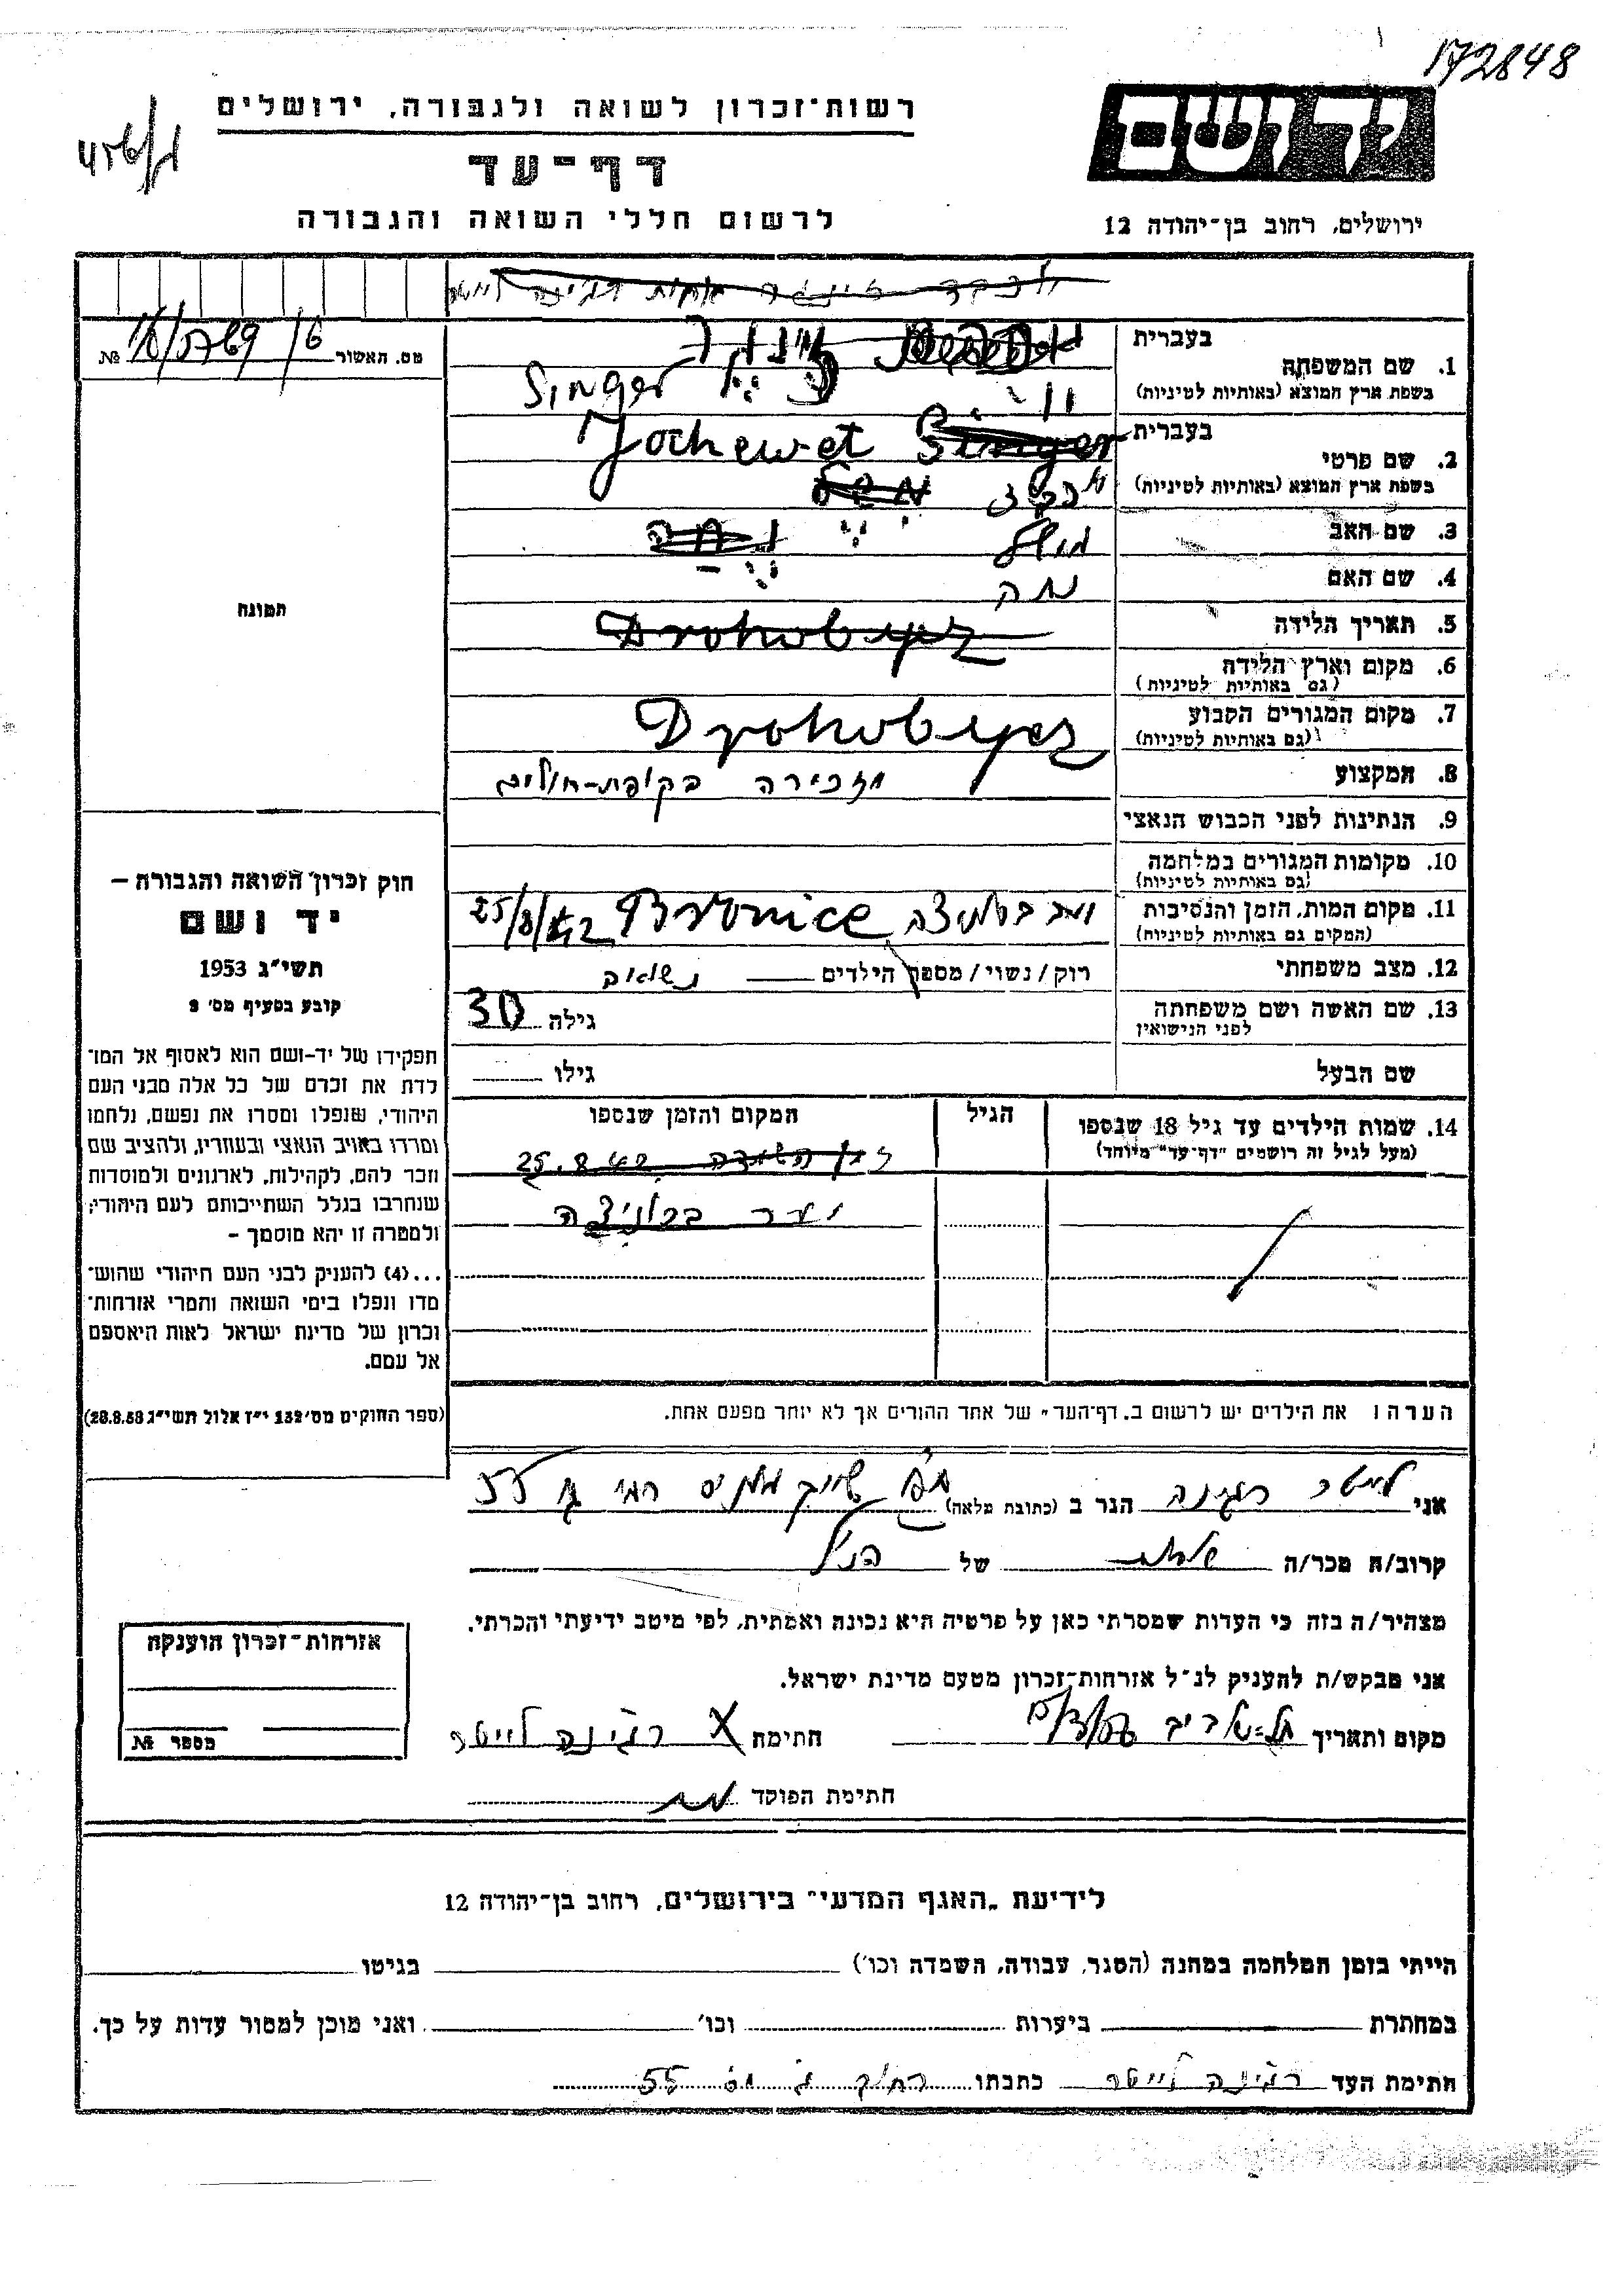 172848
רשות־זכרון לשואה ולגבורה, ירושלים
דף־עד
לרשום חללי השואה והגבורה
יד ושם
ירושלים, רחוב בן־יהודה 12
מס. האשור № 
1. שם המשפחה
בעברית
בשפת ארץ המוצא (באותיות לטיניות)
זינגר
Singer
2. שם פרטי
בעברית
בשפת ארץ המוצא (באותיות לטיניות)
Jochewet Singer
3. שם האב
4. שם האם
5. תאריך הלידה
Drohobycz
6. מקום וארץ הלידה
(גם באותיות לטיניות)
7. מקום המגורים הקבוע
(גם באותיות לטיניות)
Drohobycz
8. המקצוע
מזכירה בקופת-חולים
9. הנתינות לפני הכבוש הנאצי
10. מקומות המגורים במלחמה
(גם באותיות לטיניות)
11. מקום המות, הזמן והנסיבות
(המקום גם באותיות לטיניות)
Bronice 25/8/42
12. מצב משפחתי
רוק/נשוי/מספר הילדים נשואה
13. שם האשה ושם משפחתה
לפני הנישואין
גילה 30
שם הבעל
גילו
14. שמות הילדים עד גיל 18 שנספו
(מעל לגיל זה רושמים "דף־עד" מיוחד)
הגיל
המקום והזמן שנספו
25.8.42
יער ברוניצה
הערה: את הילדים יש לרשום ב„דף־העד״ של אחד ההורים אך לא יותר מפעם אחת.
תמונה
חוק זכרון השואה והגבורה –
יד ושם
תשי״ג 1953
קובע בסעיף מס׳ 2
תפקידו של יד-ושם הוא לאסוף אל המו־
לדת את זכרם של כל אלה מבני העם
היהודי, שנפלו ומסרו את נפשם, נלחמו
ומרדו באויב הנאצי ובעוזריו, ולהציב שם
וזכר להם, לקהילות, לארגונים ולמוסדות
שנחרבו בגלל השתייכותם לעם היהודי;
ולמטרה זו יהא מוסמך –
...(4) להעניק לבני העם היהודי שהוש־
מדו ונפלו בימי השואה והמרי אזרחות־
זכרון של מדינת ישראל לאות היאספם
אל עמם.
(ספר החוקים מס׳ 132 י״ז אלול תשי״ג 28.8.53)
אני לייטר רגינה הגר ב (כתובת מלאה)
קרוב/ה מכר/ה של הנ״ל
מצהיר/ה בזה כי העדות שמסרתי כאן על פרטיה היא נכונה ואמתית, לפי מיטב ידיעתי והכרתי.
אני מבקש/ת להעניק לנ״ל אזרחות־זכרון מטעם מדינת ישראל.
מקום ותאריך תל-אביב חתימה רגינה לייטר
חתימת הפוקד
אזרחות־זכרון הוענקה
מספר №
לידיעת „האגף המדעי״ בירושלים, רחוב בן־יהודה 12
הייתי בזמן המלחמה במחנה (הסגר, עבודה, השמדה וכו׳) בגיטו
במחתרת ביערות וכו׳ ואני מוכן למסור עדות על כך.
חתימת העד רגינה לייטר כתבתו 55